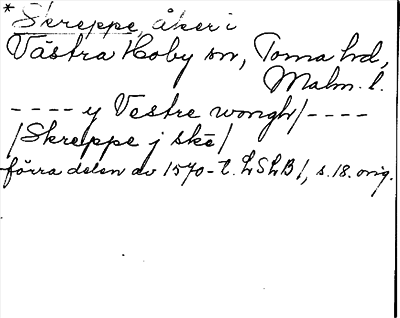 * Skreppe, åker i
Västra Hoby sn, Torna hd,
Malm. l.
---- y Vestre wongh/----
/Skreppe j skē/
förra delen av 1570-t. LSLB/, s. 18. orig.